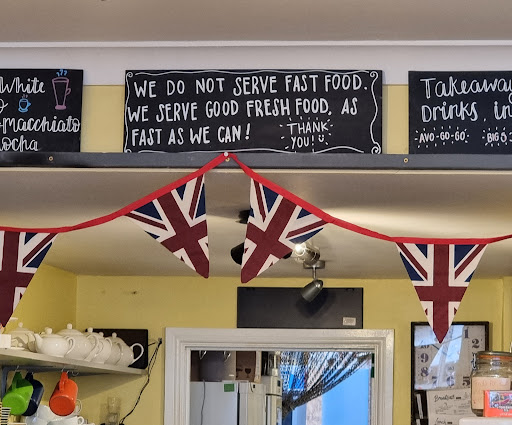 White
macchiato
WE DO NOT SERVE FAST FOOD.
WE SERVE GOOD FRESH FOOD, AS
FAST AS WE CAN!
THANK
YOU!
Takeaway
Drinks, in
AVO-GO-GO
BIG